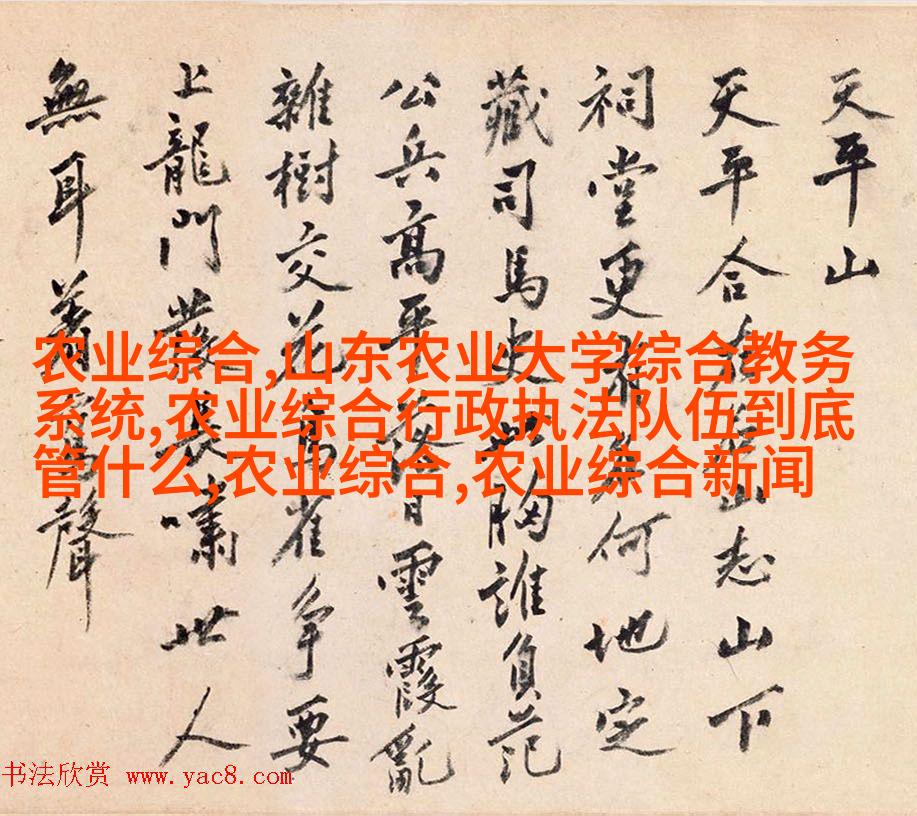 天平山
天平合在山志山下
祠堂更何地定
藏司馬史胸誰負范
公兵高平雲霞亂
雜樹交花鳥雀争要
上龍門發長嘯世人
無耳著聲
农业综合,山东农业大学综合教务
系统,农业综合行政执法队伍到底
管什么,农业综合,农业综合新闻
书法欣赏 www.yac8.com